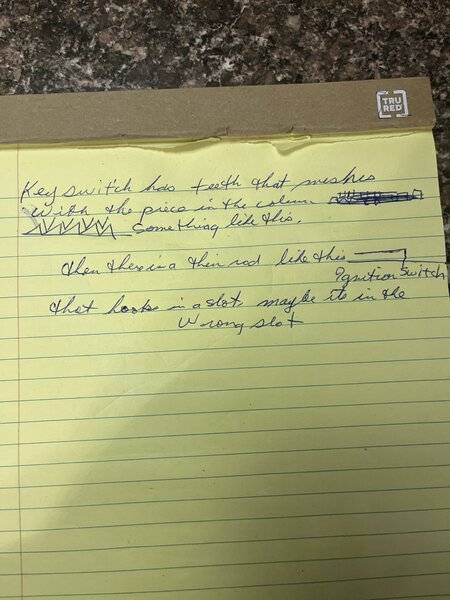 TRU
RED
Key switch has teeth that meshes
With the piece in the column
Something like this.
then there is a thin rod like this
Ignition Switch
that hooks in a slot maybe its in the
Wrong slot